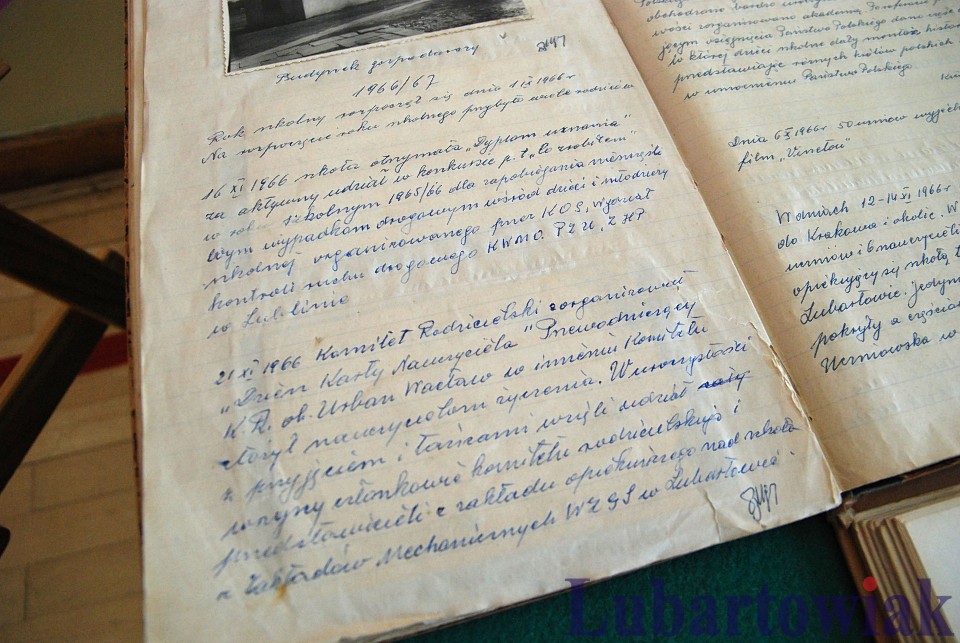 Budynek gospodarczy
1966/67
Rok szkolny rozpoczął się dnia 1 IX 1966 r
Na rozpoczęcie roku szkolnego przybyło wiele rodziców
16 XI 1966 szkoła otrzymała "Dyplom uznania"
za aktywny udział w konkursie p.t. "Co zrobiłem"
w roku szkolnym 1965/66 dla zapobiegania nieszczęśli
wym wypadkom drogowym wśród dzieci i młodzieży
szkolnej organizowanego przez KOS, Wydział
kontroli ruchu drogowego KWMO. PZU, ZHP
w Lublinie
21 XI 1966 Komitet Rodzicielski zorganizował
"Dzień Karty Nauczyciela" Przewodniczący
K.R. ob. Urban Wacław w imieniu Komitetu
złożył nauczycielom życzenia. W uroczystości
z przyjęciem i tańcami wzięli udział
wszyscy członkowie komitetu rodzicielskiego i
przedstawiciele zakładu opiekuńczego nad szkołą
z Zakładów Mechanicznych WZGS w Lubartowie.
obchodzono bardzo
wości zorganizowano akademię.
jącym osiągnięcia Państwa Polskiego dano
w której dzieci szkolne dały montaż histor
przedstawiając różnych królów polskich
w umocnieniu Państwa Polskiego.
Dnia 6 X 1966 r 50 uczniów wyjech
film "Vinetou"
W dniach 12-14 XI 1966 r
do Krakowa i okolic. W
uczniów i 6 nauczycieli
opiekujący się szkołą
Lubartowie.
pokryły a części
Uczniowska w
Lubartowiak